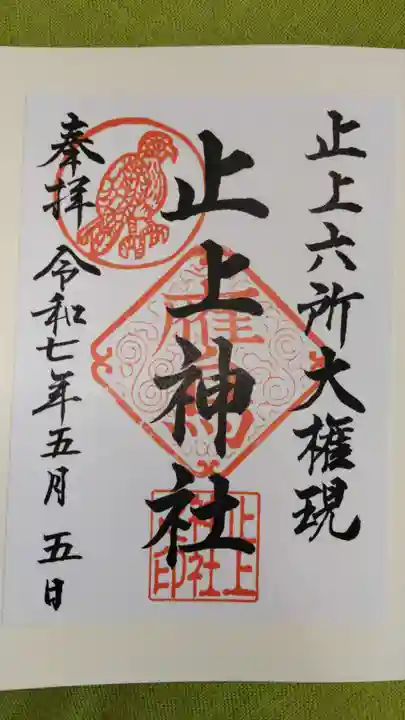 止上六所大権現
止上神社
奉拝 令和七年五月五日
鷹
止上
神社